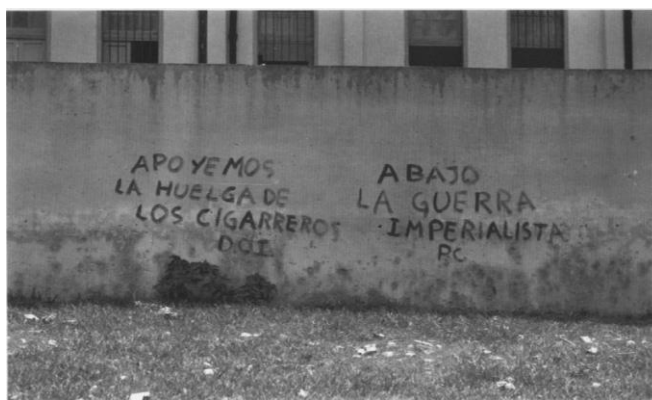 APOYEMOS
LA HUELGA DE
LOS CIGARREROS
DOI
ABAJO
LA GUERRA
IMPERIALISTA
P.C